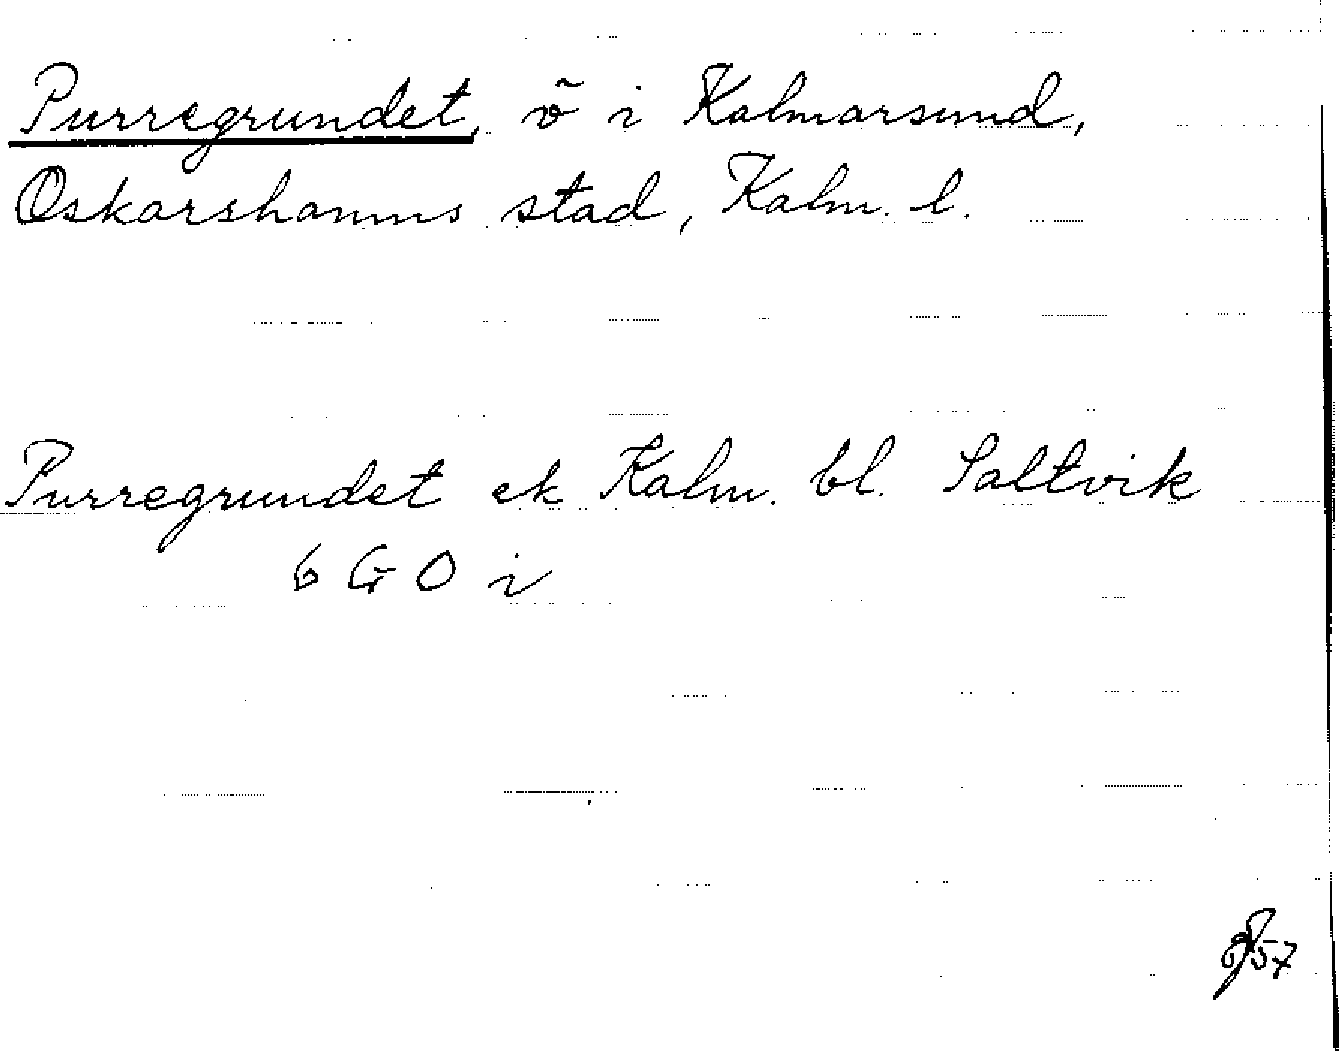 Purregrundet, ö i Kalmarsund,
Oskarshamns stad, Kalm. l.
Purregrundet ek Kalm. bl. Saltvik
6 G O i
57